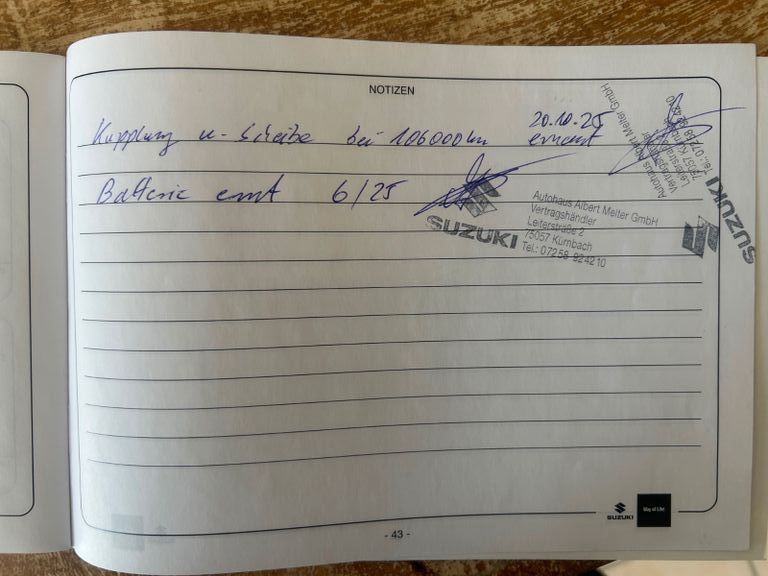 NOTIZEN
20.10.25
Kupplung u- Scheibe bei 106000 km erneuert
Batterie ernt 6/25
SUZUKI
Autohaus Albert Melter GmbH
Vertragshändler
Leiterstraße 2
75057 Kürnbach
Tel.: 07258 924210
SUZUKI
Autohaus Albert Melter GmbH
Vertragshändler
Leiterstraße 2
75057 Kürnbach
Tel.: 07258 924210
SUZUKI
Way of Life!
- 43 -